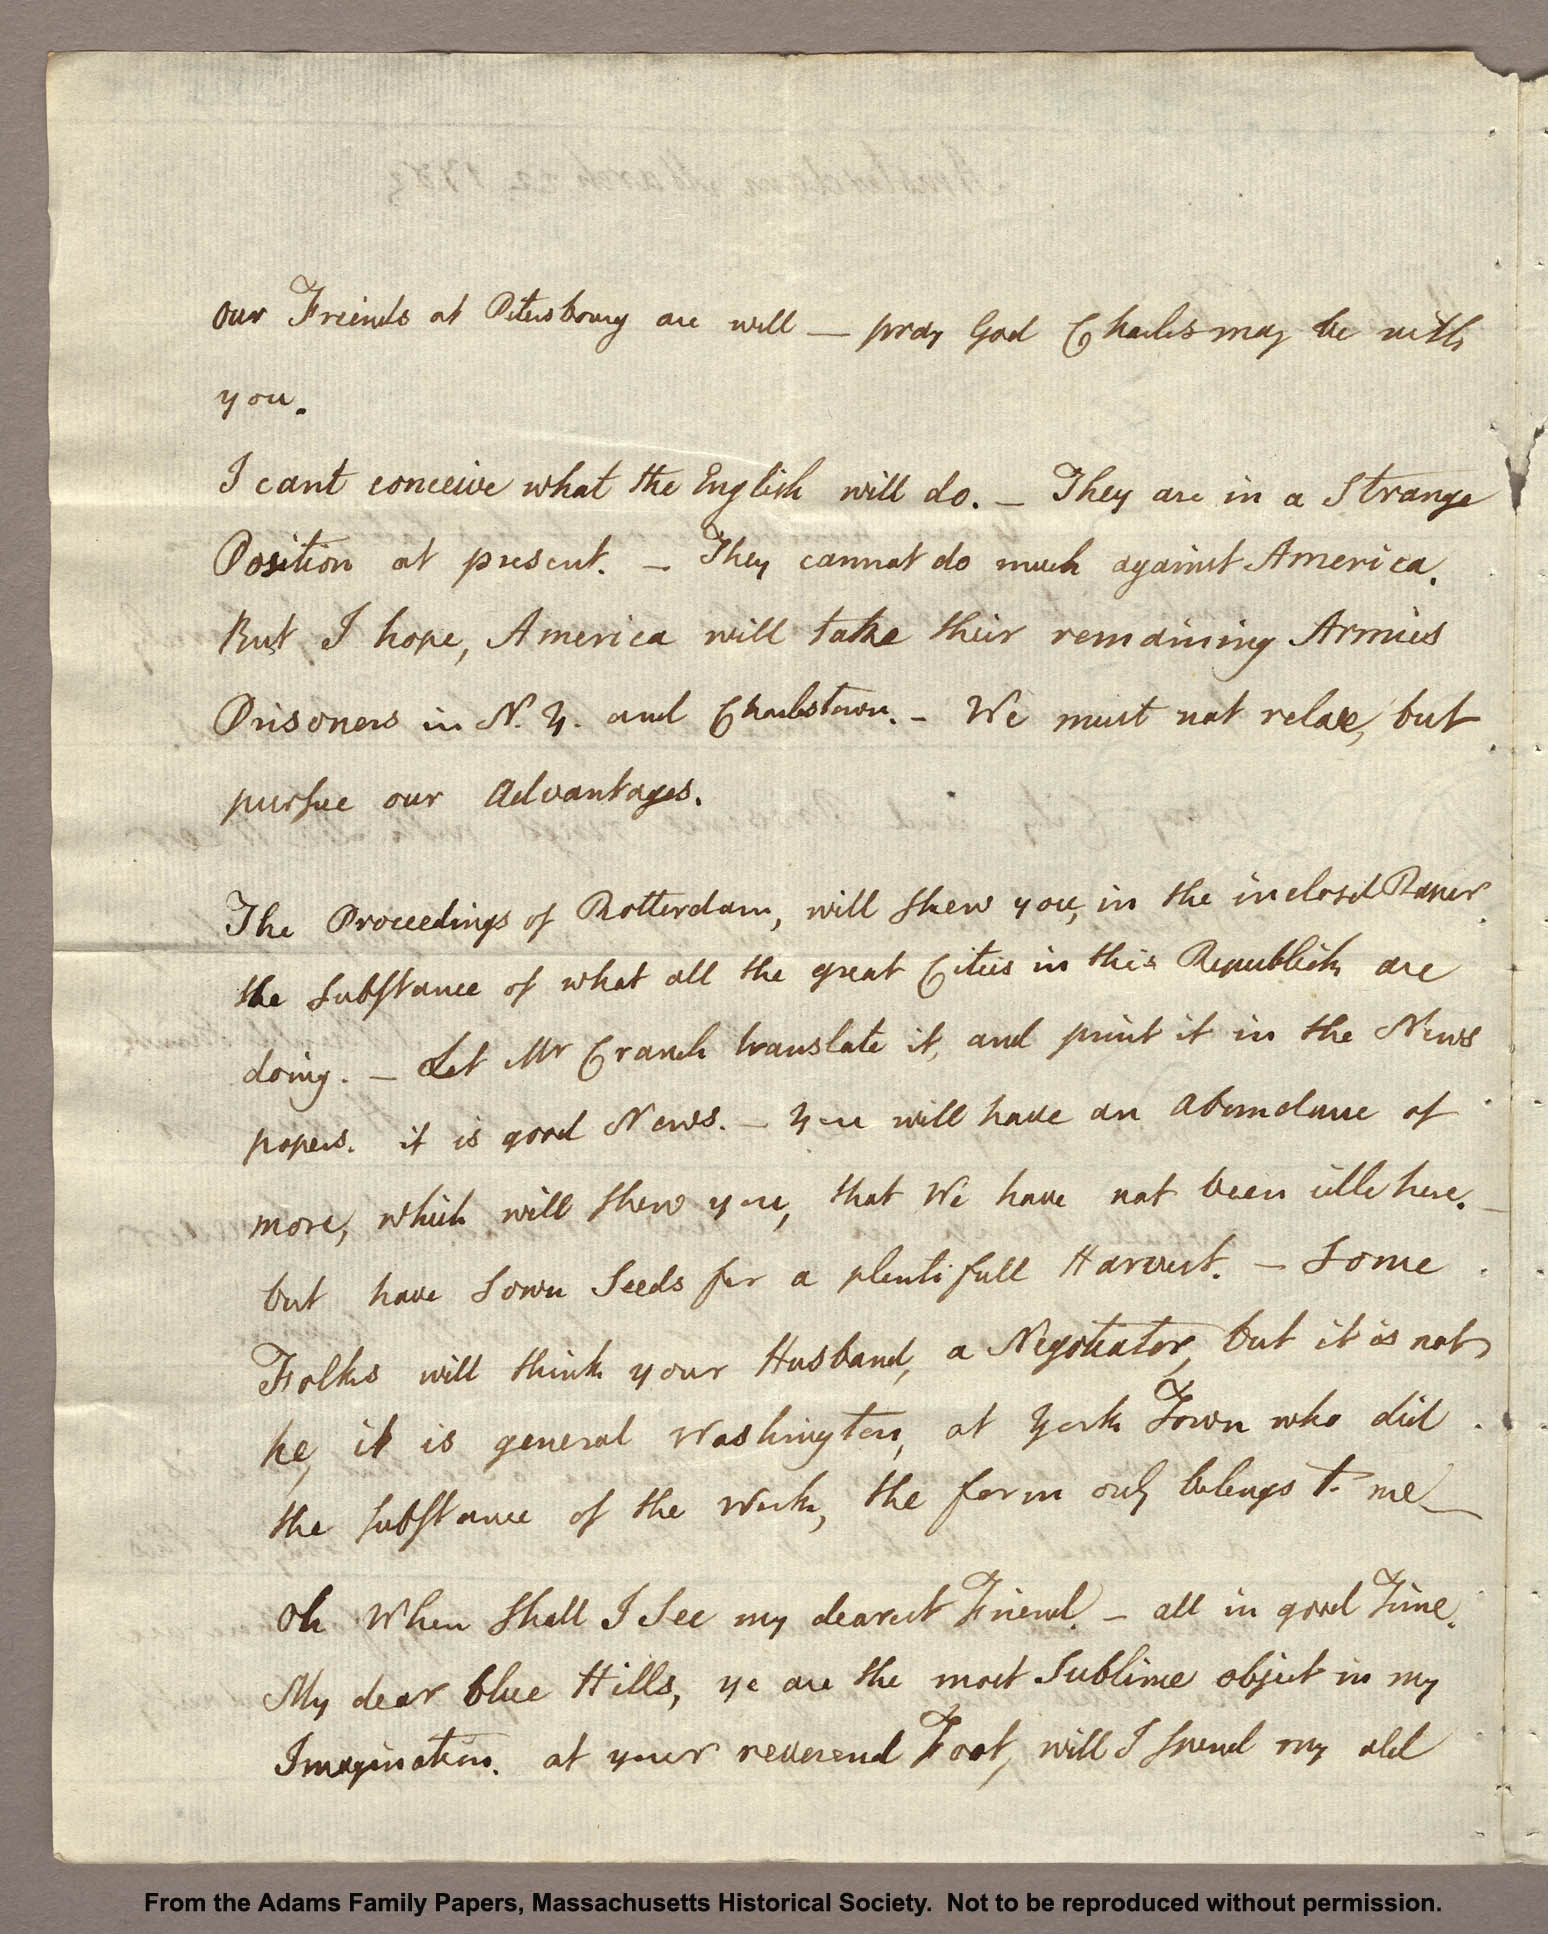 our Friends at Petersbourg are well — pray God Charles may be with
you.
I cant conceive what the English will do. — They are in a Strange
Position at present. — They cannot do much against America.
But I hope, America will take their remaining Armies
Prisoners in N. Y. and Charlestown. — We must not relax, but
pursue our Advantages.
The Proceedings of Rotterdam, will shew you, in the inclosed Paper
the Substance of what all the great Cities in this Republick are
doing. — Let Mr Cranch translate it, and print it in the News
papers. it is good News. — You will have an Abundance of
more, which will shew you, that We have not been idle here. —
but have Sown Seeds for a plentifull Harvest. — Some
Folks will think your Husband, a Negotiator, but it is not
he, it is general Washington, at York Town who did
the substance of the Work, the form only belongs to me —
Oh When shall I See my dearest Friend. — all in good Time.
My dear blue Hills, ye are the most Sublime object in my
Imagination. at your reverend Foot, will I spend my old
From the Adams Family Papers, Massachusetts Historical Society. Not to be reproduced without permission.